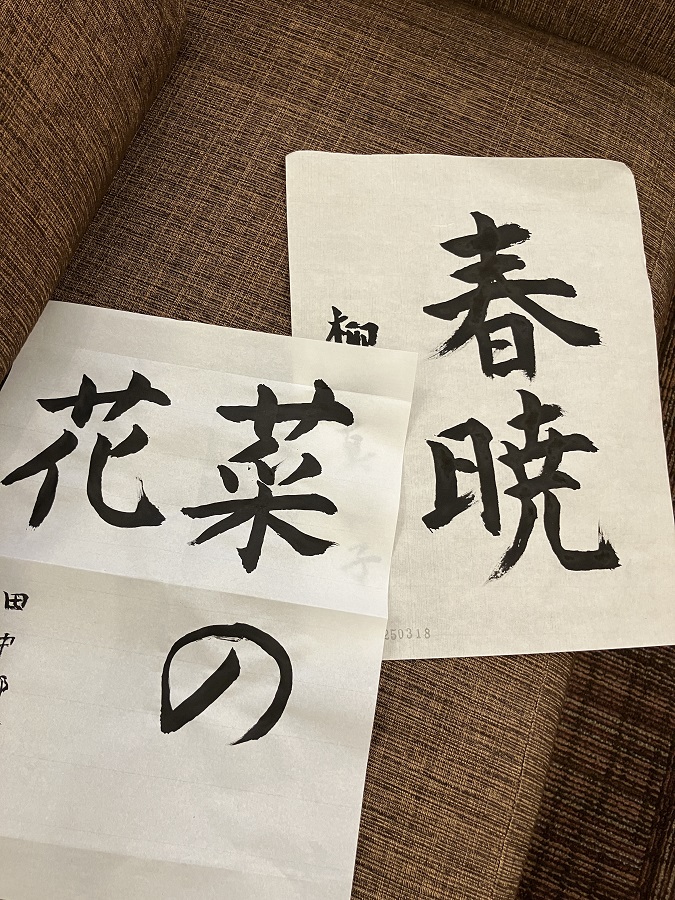 春暁
柳
250318
菜の
花
田中